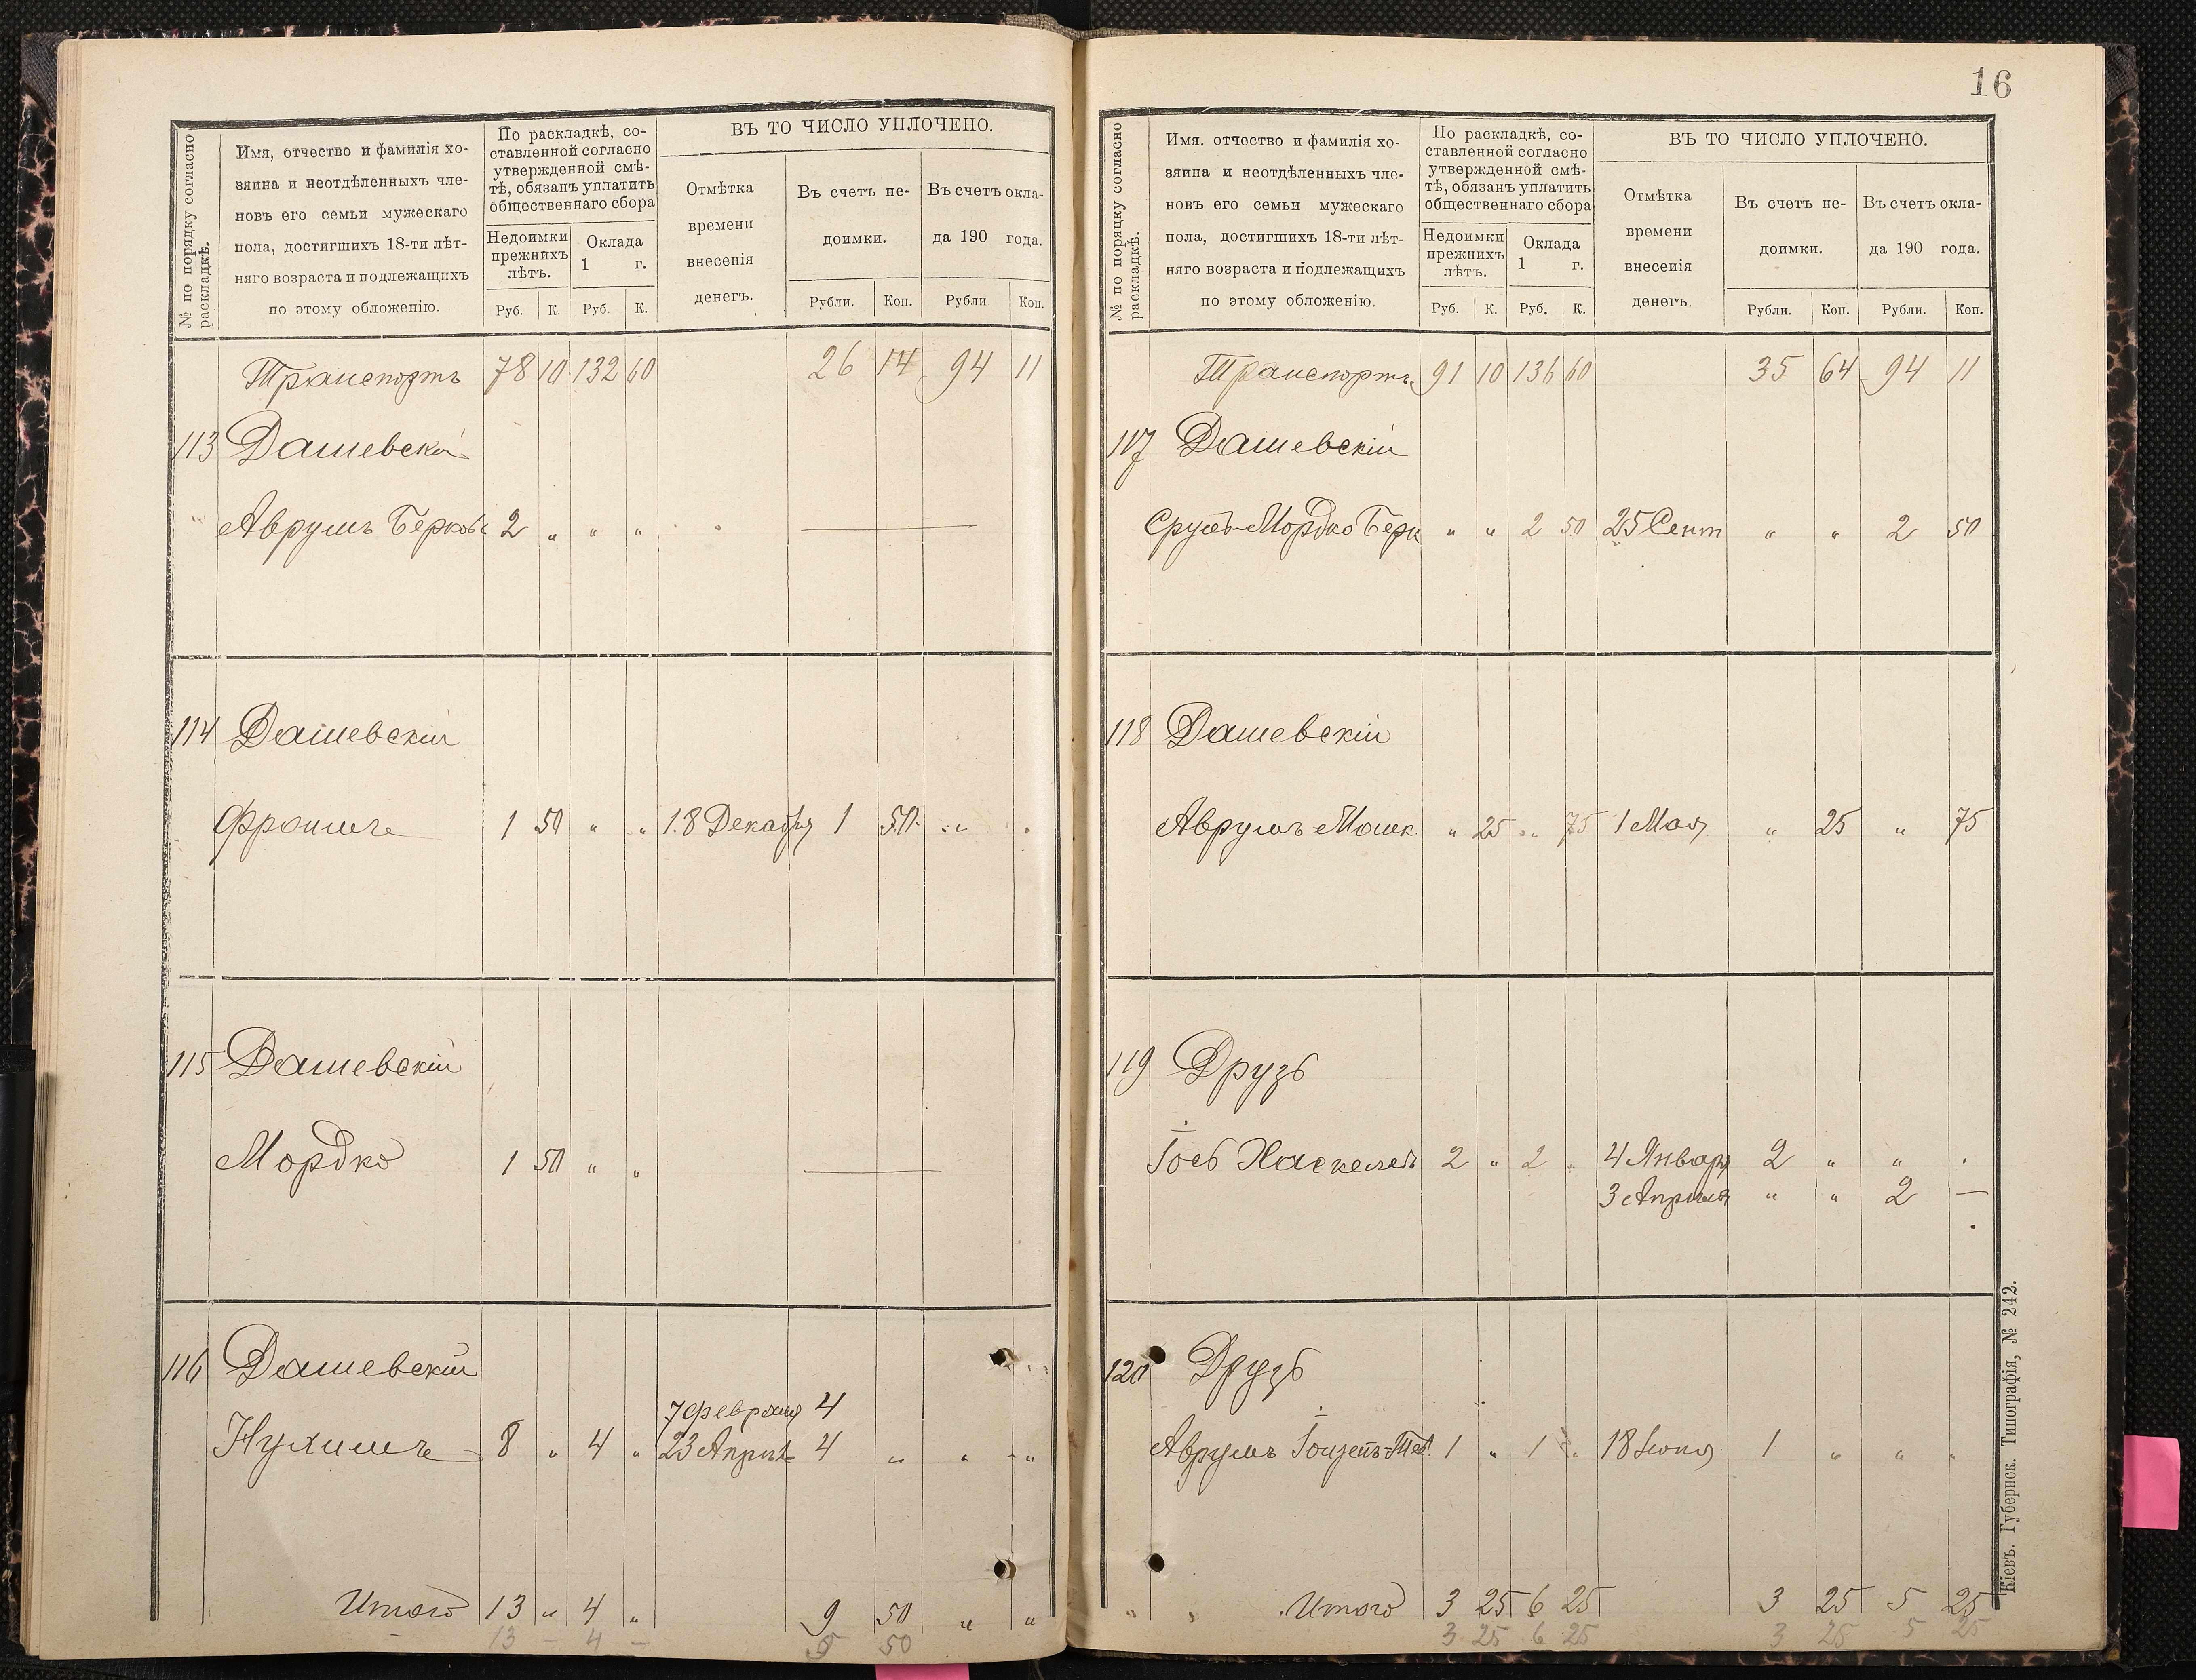 № по порядку согласно
раскладкѣ.
Имя, отчество и фамилія хо-
зяина и неотдѣленныхъ чле-
новъ его семьи мужескаго
пола, достигшихъ 18-ти лѣт-
няго возраста и подлежащихъ
по этому обложенію.
По раскладкѣ, со-
ставленной согласно
утвержденной смѣ-
тѣ, обязанъ уплатить
общественнаго сбора
Недоимки
прежнихъ
лѣтъ.
Оклада
1 г.
Руб. К. Руб. К.
ВЪ ТО ЧИСЛО УПЛОЧЕНО.
Отмѣтка
времени
внесенія
денегъ.
Въ счетъ не-
доимки.
Въ счетъ окла-
да 190 года.
Рубли. Коп. Рубли. Коп.
Транспортъ 78 10 132 60 26 14 94 11
113 Дашевскій
Аврумъ Берков 2 " " "
114 Дашевскій
Фроимъ 1 50 " " 18 Декабря 1 50 " "
115 Дашевскій
Мордко 1 50 " "
116 Дашевскій
7 Февраля 4
Нухимъ 8 " 4 " 23 Апрѣл 4 " " "
Итого 13 " 4 " 9 50 " "
13 - 4 - 9 50
16
№ по порядку согласно
раскладкѣ.
Имя. отчество и фамилія хо-
зяина и неотдѣленныхъ чле-
новъ его семьи мужескаго
пола, достигшихъ 18-ти лѣт-
няго возраста и подлежащихъ
по этому обложенію.
По раскладкѣ, со-
ставленной согласно
утвержденной смѣ-
тѣ, обязанъ уплатить
общественнаго сбора
Недоимки
прежнихъ
лѣтъ.
Оклада
1 г.
Руб. К. Руб. К.
ВЪ ТО ЧИСЛО УПЛОЧЕНО.
Отмѣтка
времени
внесенія
денегъ.
Въ счетъ не-
доимки.
Въ счетъ окла-
да 190 года.
Рубли. Коп. Рубли. Коп.
Транспортъ 91 10 136 60 35 64 94 11
117 Дашевскій
Сруль-Мордко Берк " " 2 50 25 Сент " " 2 50
118 Дашевскій
Аврумъ Мошк " 25 " 75 1 Мая " 25 " 75
119 Друзь
Іось Хаскелевъ 2 " 2 " 4 Января 2 " " "
3 Апрѣля " " 2 —
120 Друзь
Аврумъ 1 " 1 " 18 Іюня 1 " " "
Итого 3 25 6 25 3 25 5 25
3 25 6 25 3 25 5 25
Кіевъ. Губернск. Типографія, № 242.